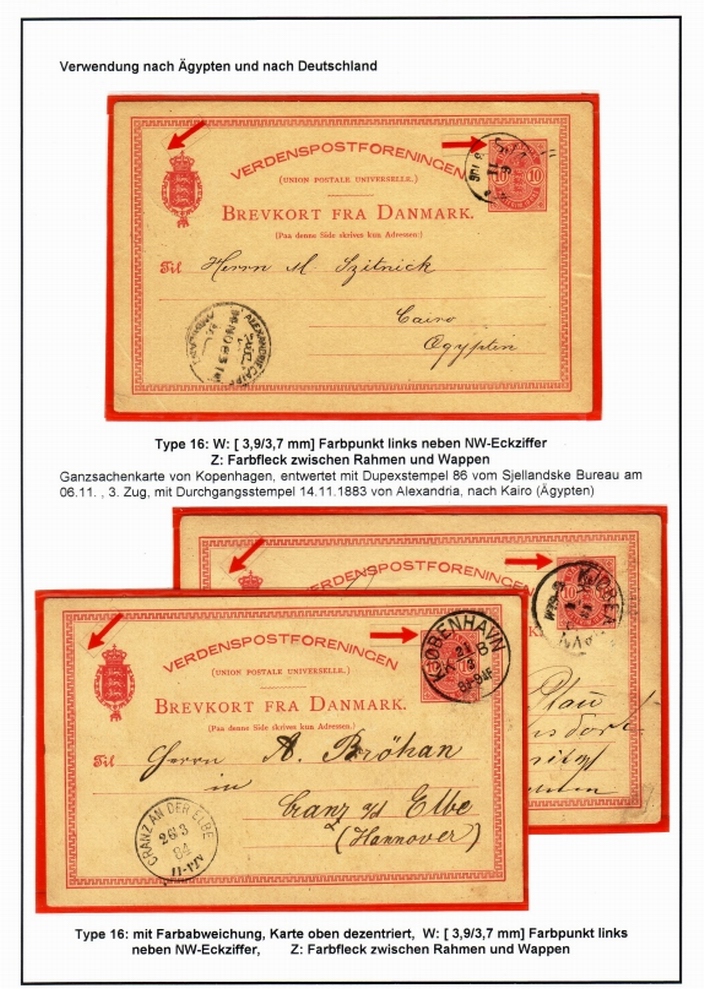 Verwendung nach Ägypten und nach Deutschland
VERDENSPOSTFORENINGEN
10 10
(UNION POSTALE UNIVERSELLE.)
BREVKORT FRA DANMARK.
(Paa denne Side skrives kun Adressen:)
Til Herrn M. Szitnick
Cairo
Egyptin
ALEXANDRIE CAIRE
Type 16: W: [ 3,9/3,7 mm] Farbpunkt links neben NW-Eckziffer
Z: Farbfleck zwischen Rahmen und Wappen
Ganzsachenkarte von Kopenhagen, entwertet mit Dupexstempel 86 vom Sjellandske Bureau am
06.11. , 3. Zug, mit Durchgangsstempel 14.11.1883 von Alexandria, nach Kairo (Ägypten)
VERDENSPOSTFORENINGEN
10
Plau
VERDENSPOSTFORENINGEN
KJØBENHAVN
21 3
K B
8-9 3F
(UNION POSTALE UNIVERSELLE.)
BREVKORT FRA DANMARK.
(Paa denne Side skrives kun Adressen:)
Til Herrn A. Bröhan
in
Cranz a/d Elbe
(Hannover)
CRANZ AN DER ELBE
26/3
84
11-12V
Type 16: mit Farbabweichung, Karte oben dezentriert, W: [ 3,9/3,7 mm] Farbpunkt links
neben NW-Eckziffer, Z: Farbfleck zwischen Rahmen und Wappen